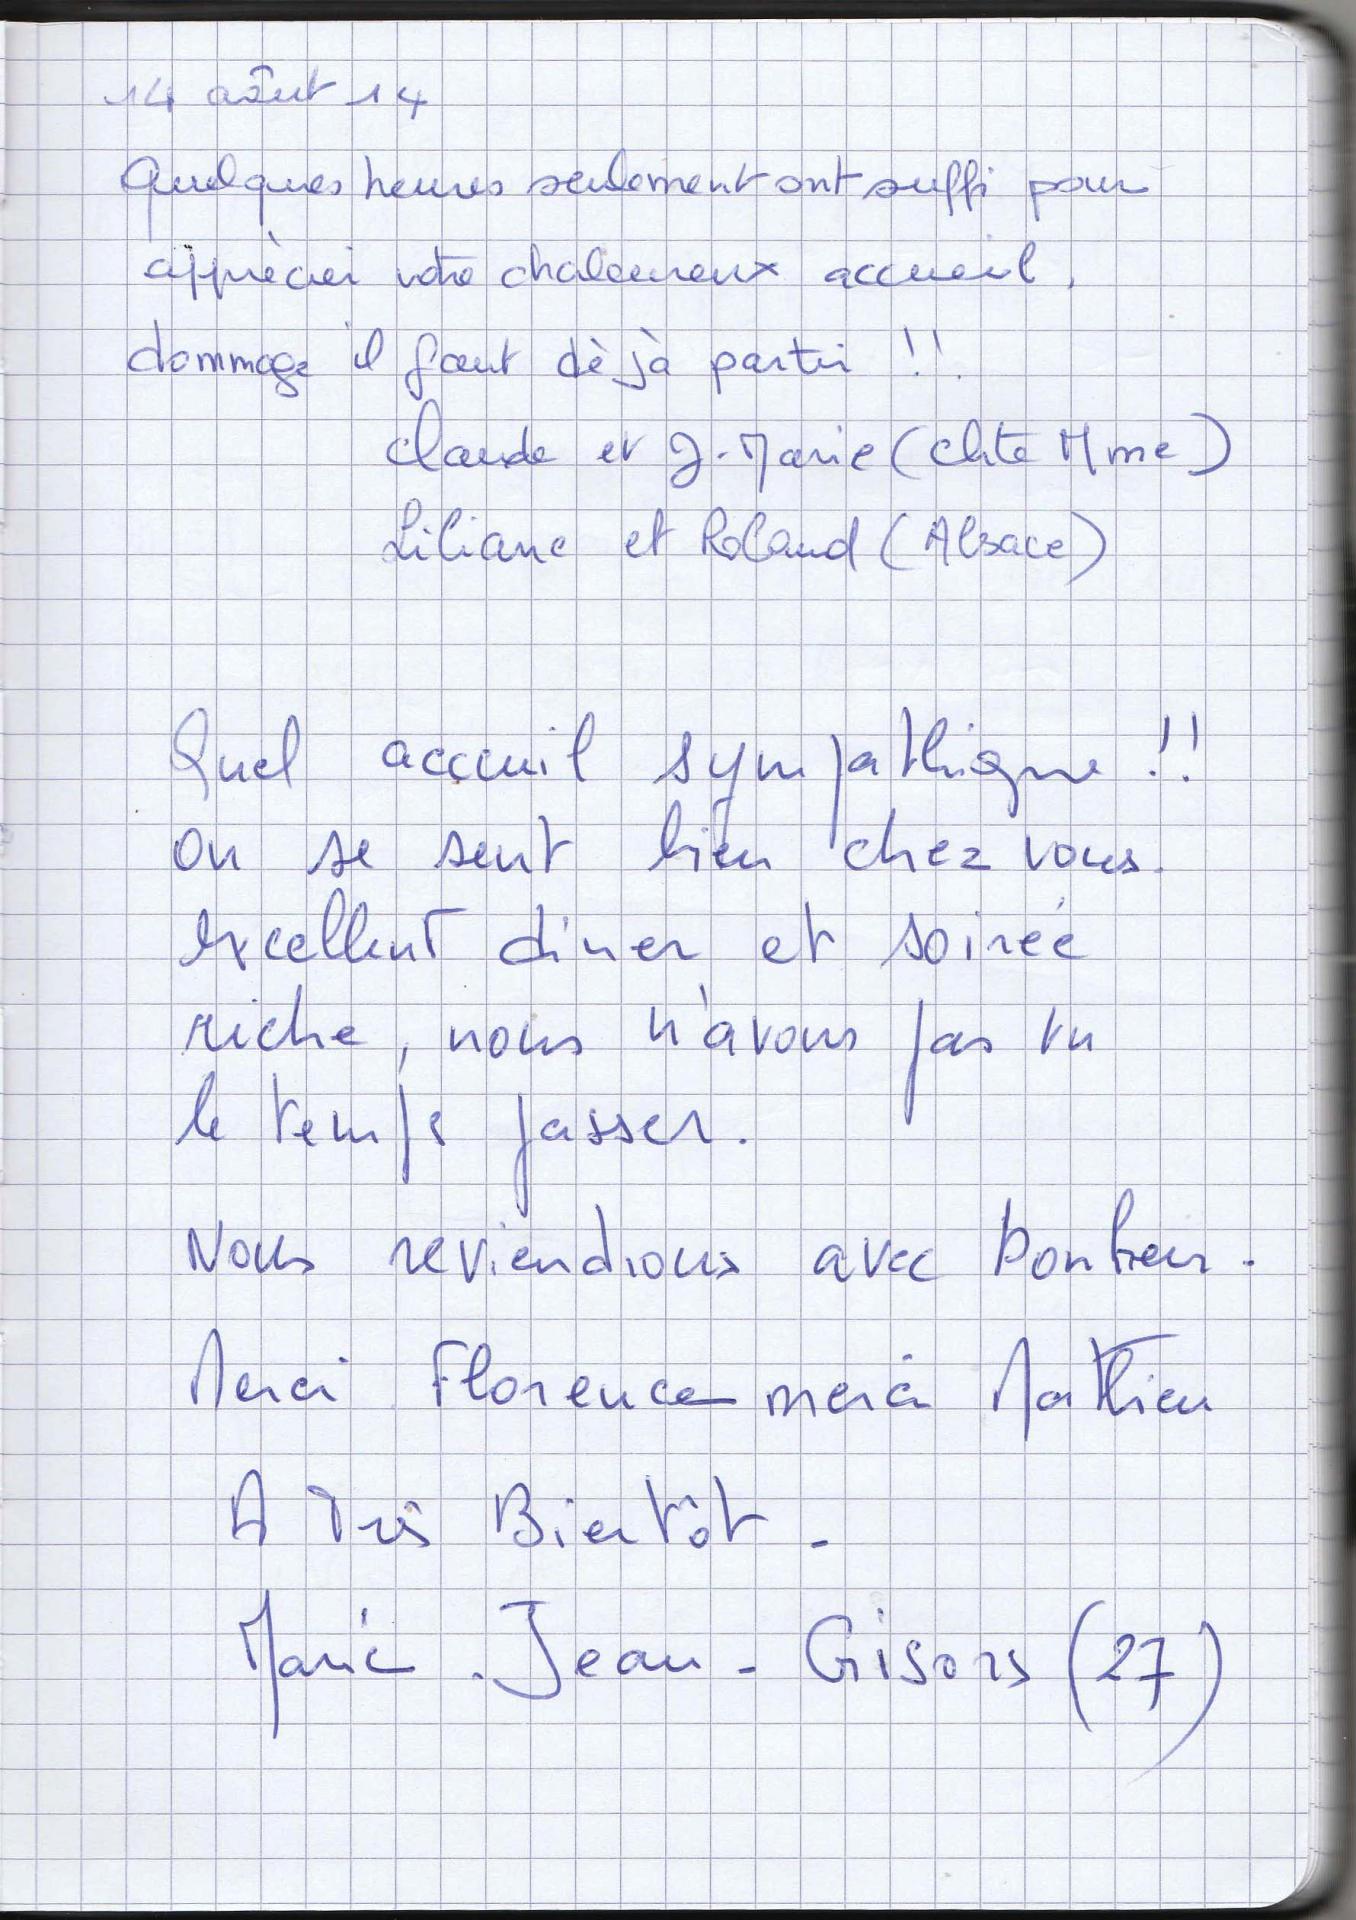 14 août 14
Quelques heures seulement ont suffi pour
apprècier votre chaleureux accueil,
dommage il faut dèjà partir !!
Claude et J. Marie (Chte Mme)
Liliane et Roland (Alsace)
Quel accueil sympathique !!
on se sent bien chez vous.
excellent diner et soirée
riche, nous n'avons pas vu
le temps passer.
Nous reviendrons avec bonheur.
Merci Florence merci Mathieu
A Très Bientôt -
Marie - Jean - Gisors (27)